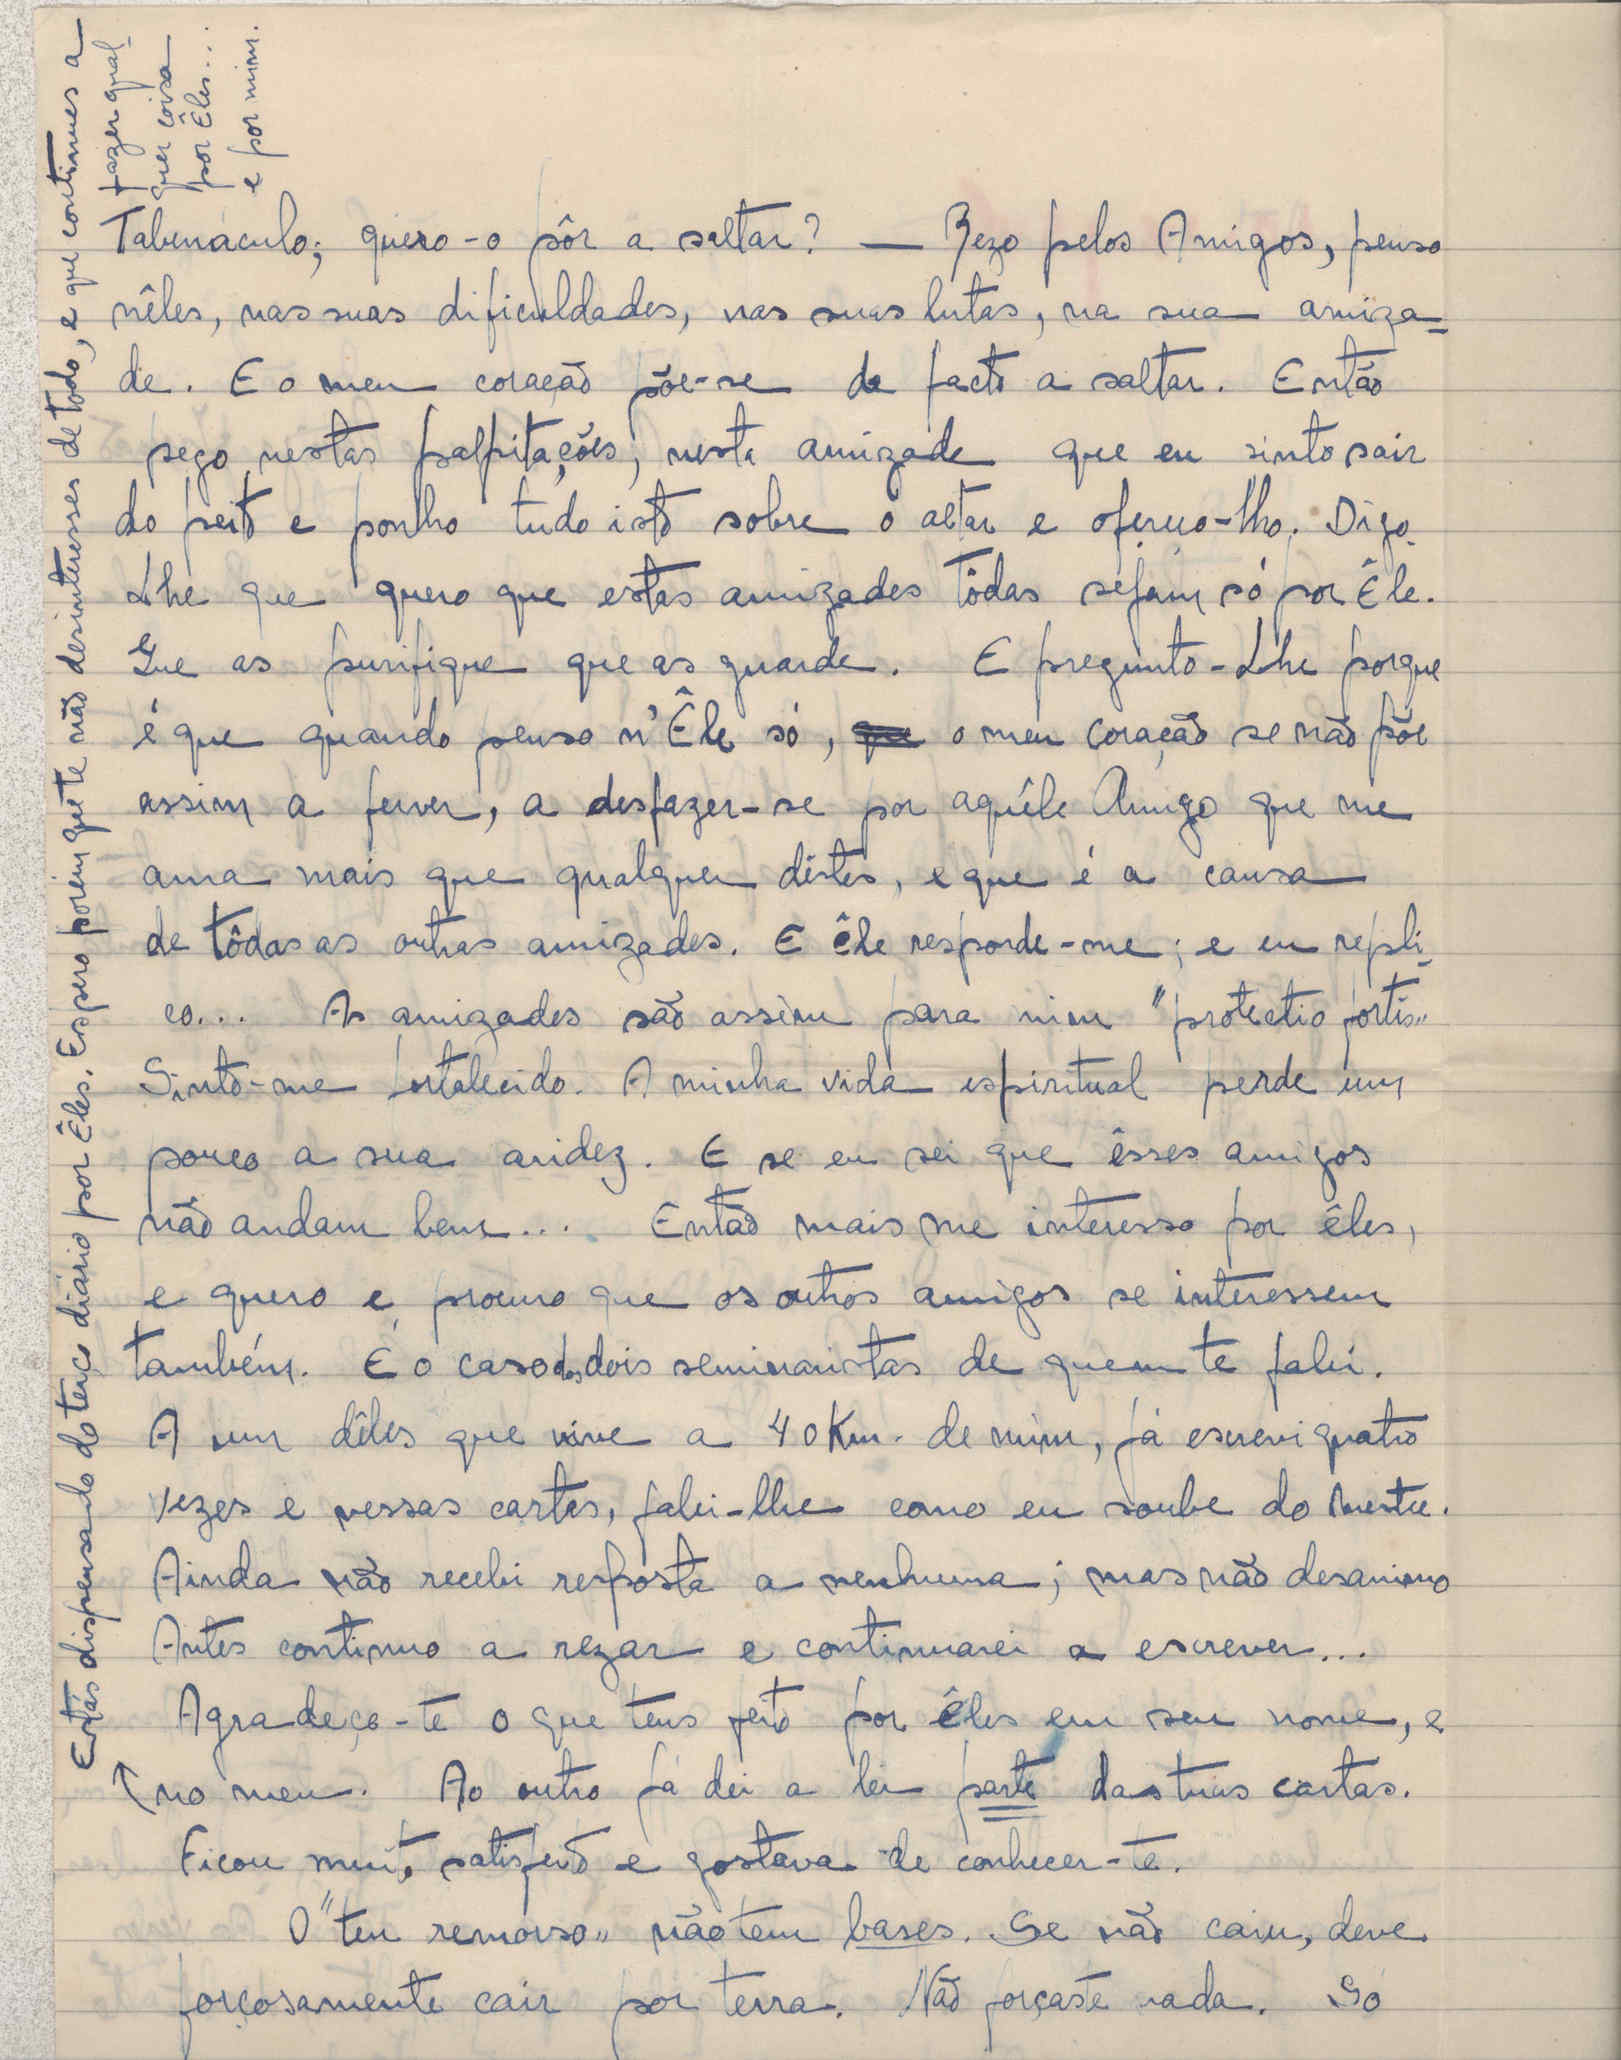 Tabernáculo; quero-o pôr a saltar? — Rezo pelos Amigos, penso
nêles, nas suas dificuldades, nas suas lutas, na sua amiza-
de. E o meu coração põe-se de facto a saltar. Então
pego nestas palpitações, nesta amizade que eu sinto sair
do peito e ponho tudo isto sobre o altar e ofereço-lho. Digo-
Lhe que quero que estas amizades tôdas sejam só por Êle.
Que as purifique que as guarde. E pregunto-Lhe porque
é que quando penso n'Êle só, o meu coração se não põe
assim a ferver, a desfazer-se por aquêle Amigo que me
ama mais que qualquer dêstes, e que é a causa
de tôdas as outras amizades. E êle responde-me; e eu repli-
co... As amizades são assim para mim "protectio fortis"
Sinto-me fortalecido. A minha vida espiritual perde um
pouco a sua aridez. E se eu sei que êsses amigos
não andam bem... Então mais me interesso por êles,
e quero e procuro que os outros amigos se interessem
também. É o caso dos dois seminaristas de quem te falei.
A um dêles que vive a 40 Km. de mim, já escrevi quatro
vezes e nessas cartas, falei-lhe como eu soube do Mestre.
Ainda não recebi resposta a nenhuma; mas não desanimo
Antes continuo a rezar e continuarei a escrever...
Agradeço-te o que tens feito por êles em seu nome, e
no meu. Ao outro já dei a ler parte das tuas cartas.
Ficou muito satisfeito e gostava de conhecer-te.
O "teu remorso" não tem bases. Se não caiu, deve
forçosamente cair por terra. Não forçaste nada. Só
Estás dispensado do terço diário por Êles. Espero porém que te não desinteresses de todo, e que continues a
fazer qual-
quer coisa
por Êles...
e por mim.